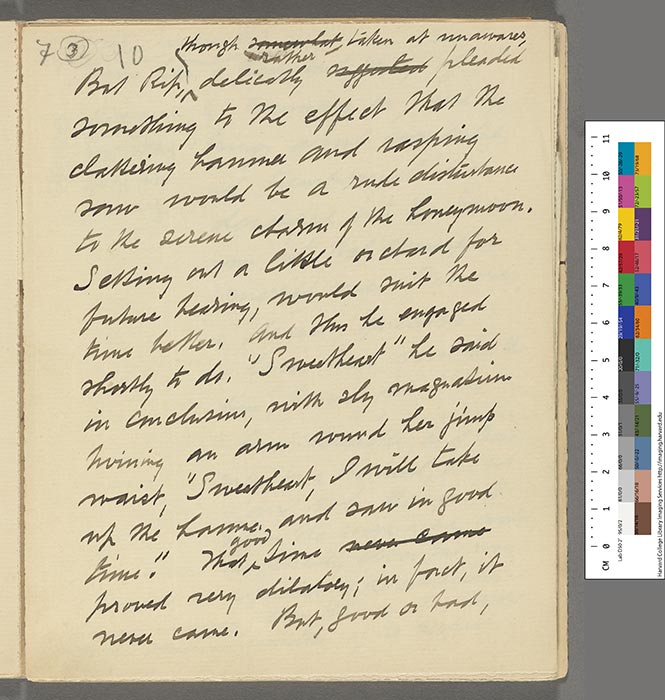 7 3 10
though somewhat taken at unawares,
rather
But Rip, delicately suggested pleaded
something to the effect that the
clattering hammer and rasping
saw would be a rude disturbance
to the serene charm of the honeymoon.
Setting out a little orchard for
future bearing, would suit the
time better. And this he engaged
shortly to do. "Sweetheart" he said
in conclusion, with sly magnetism
twining an arm round her jimp
waist, "Sweetheart, I will take
up the hammer and saw in good
time." That good time never came
proved very dilatory; in fact, it
never came. But, good or bad,
CM 0 1 2 3 4 5 6 7 8 9 10 11
Harvard College Library Imaging Services http://imaging.harvard.edu